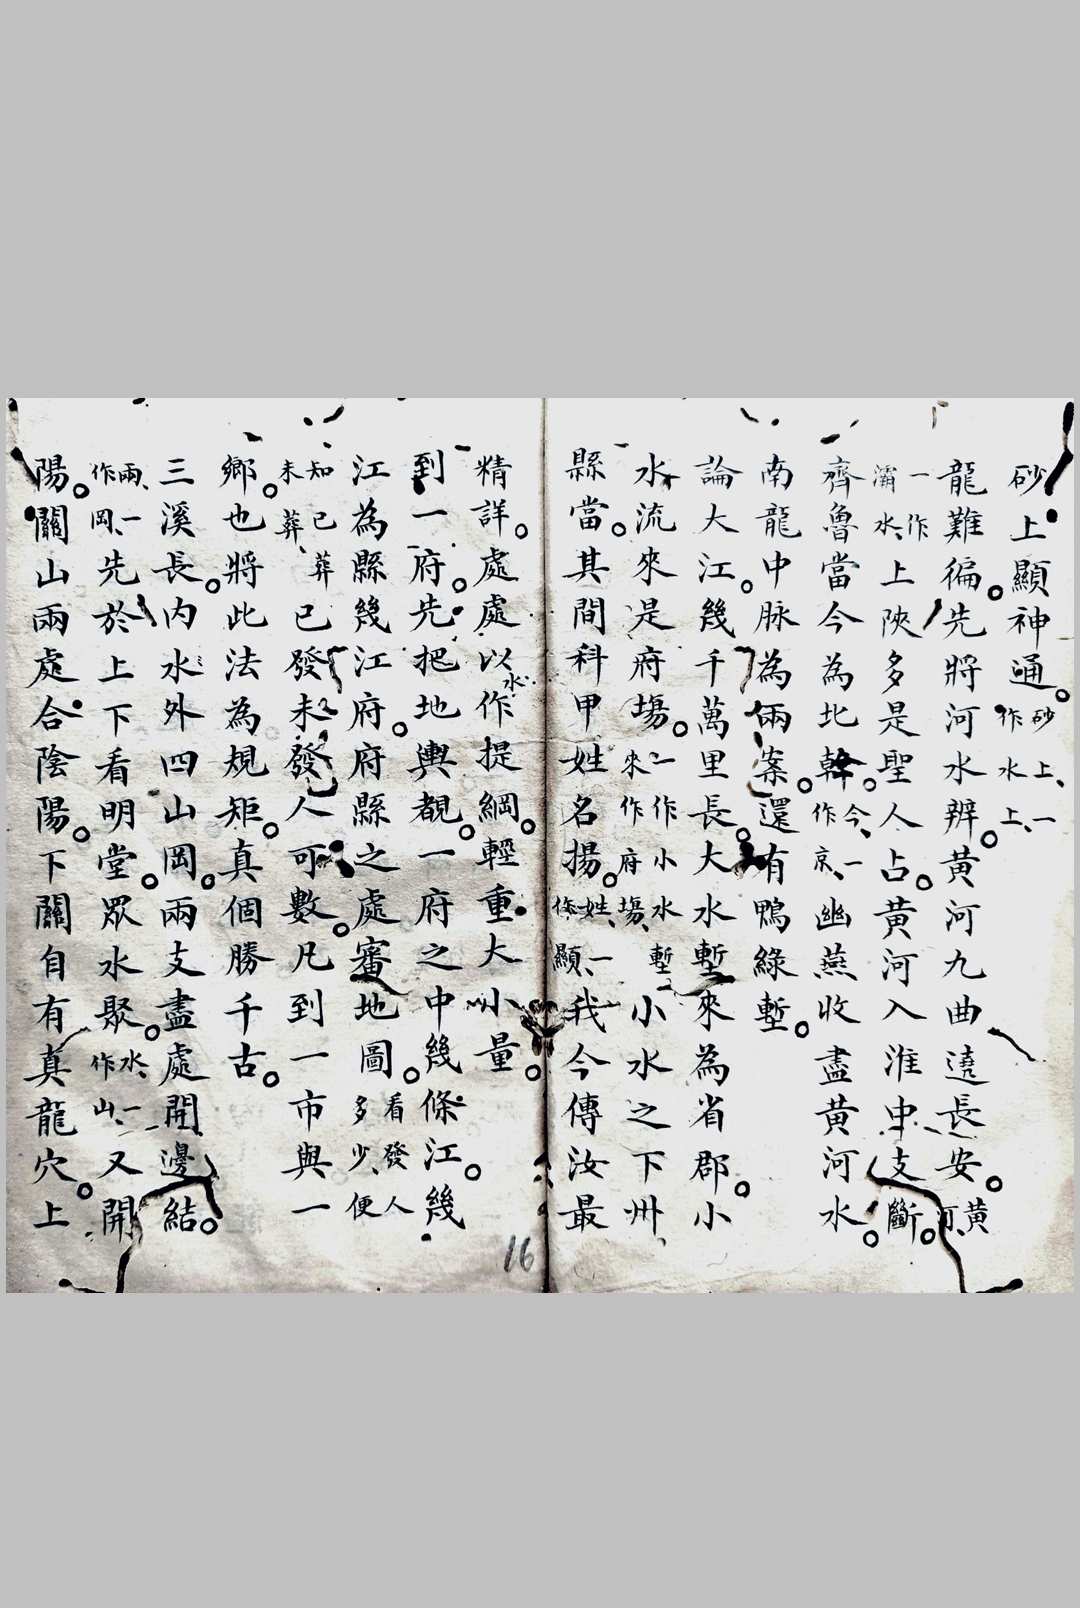 砂上顯神通砂上一作水上
龍難徧先將河水辨黃河九曲遶長安黃河
一作灞水上陝多是聖人占黃河入淮中支斷
齊魯當今為北幹今一作京幽燕收盡黃河水
南龍中脉為兩案還有鴨綠塹
論大江幾千萬里長大水塹來為省郡小
水流來是府塲一作小水塹來作府塲小水之下州
縣當其間科甲姓名揚姓一作顯我今傳汝最
精詳處處以水作提綱輕重大小量
到一府先把地輿覩一府之中幾條江幾
江為縣幾江府府縣之處審地圖看發人多少便
知已葬未葬已發未發人可數凡到一市與一
鄉也將此法為規矩真個勝千古
三溪長內水外四山岡兩支盡處開邊結
兩一作岡先於上下看明堂眾水聚水一作山又開
陽關山兩處合陰陽下關自有真龍穴上
16